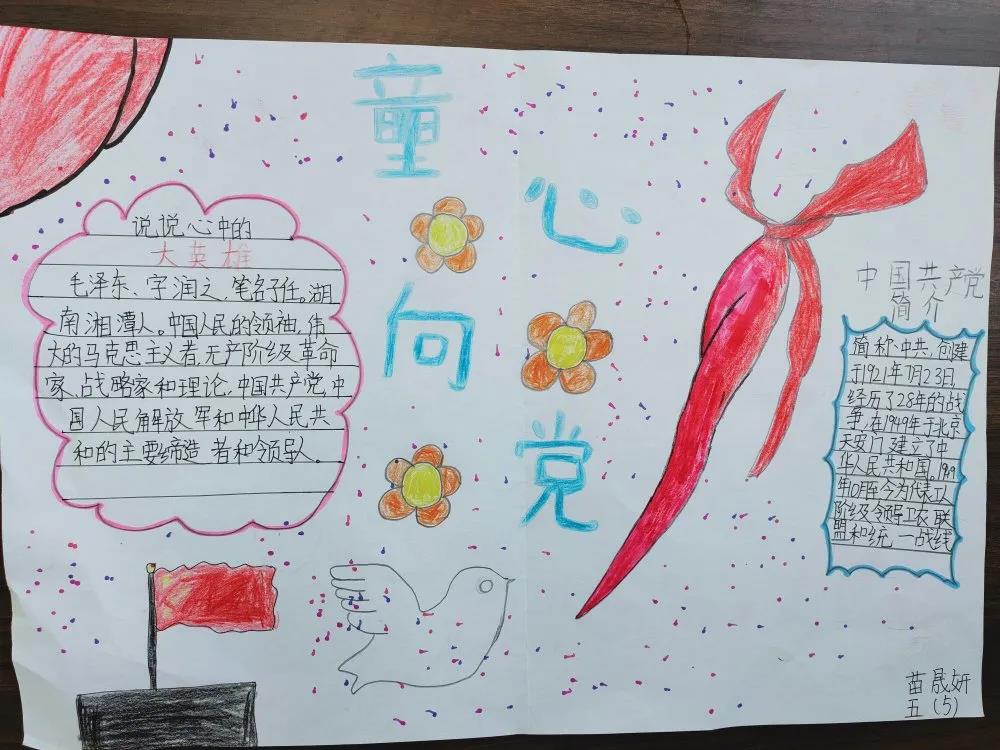 童
心
向
党
说说心中的
大英雄
毛泽东、字润之、笔名子任。湖
南湘潭人。中国人民的领袖,伟
大的马克思主义者,无产阶级革命
家、战略家和理论,中国共产党,中
国人民解放军和中华人民共
和的主要缔造者和领导人。
中国共产党
简介
简称中共,创建
于1921年7月23日,
经历了28年的战
争,在1949年于北京
天安门建立了中
华人民共和国。1949
年10月至今为代表工人
阶级领导工农联
盟和统一战线
苗晟妍
五(5)